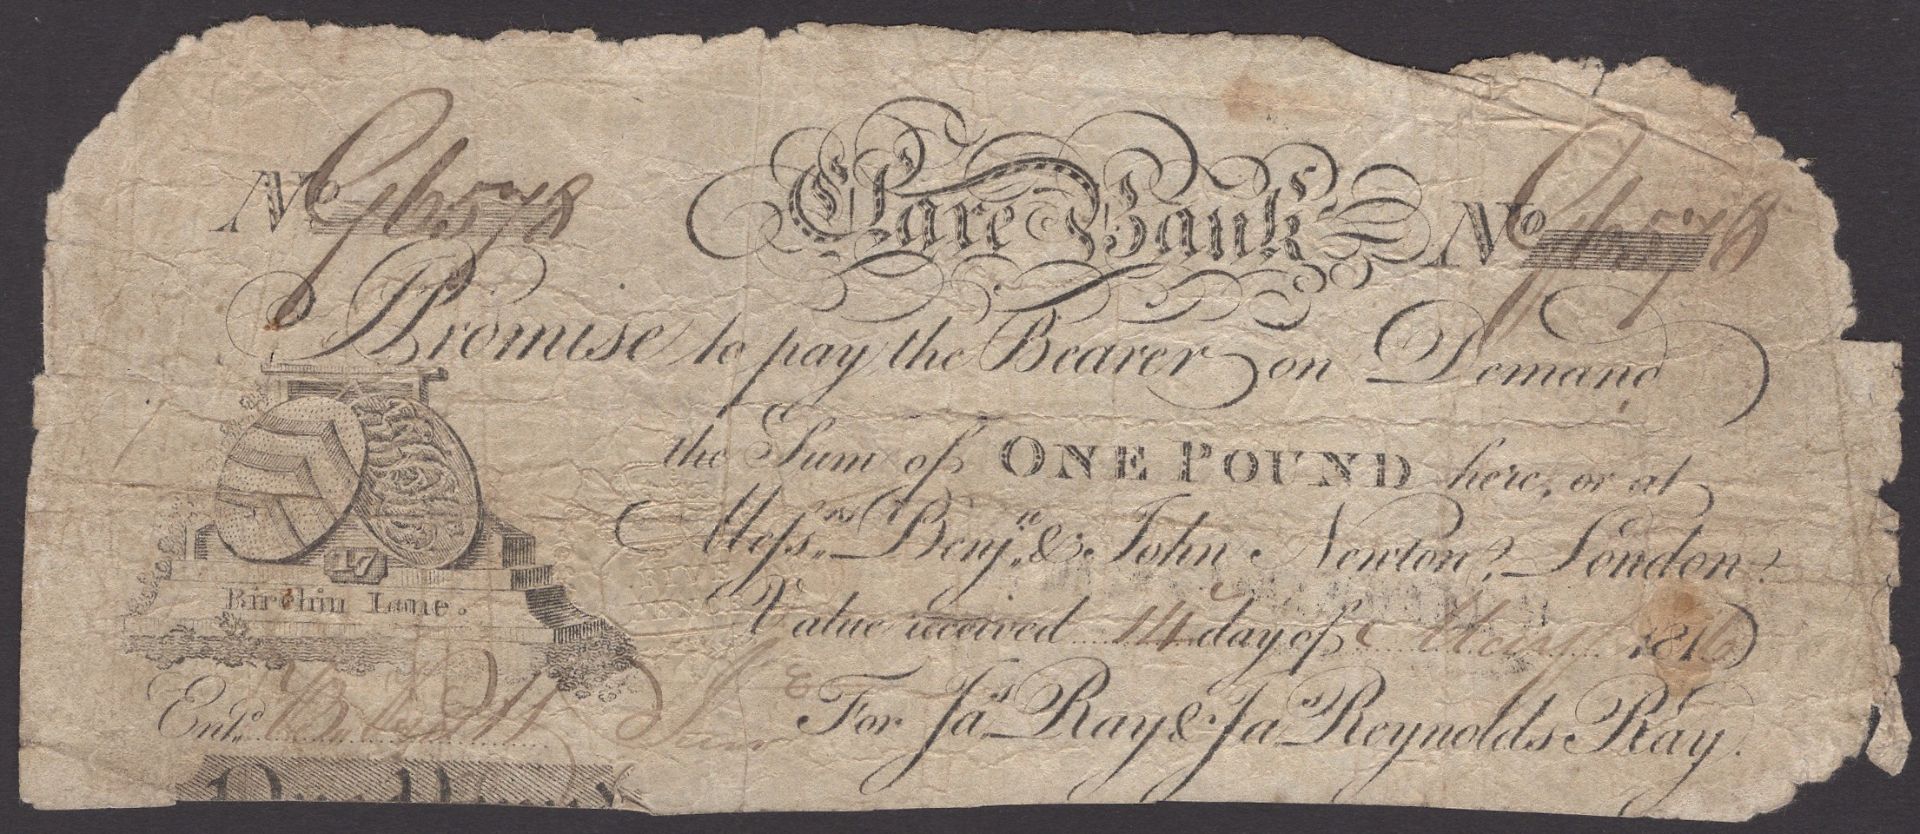 No 96578 Clare Bank No 96578
I Promise to pay the Bearer on Demand
the Sum of ONE POUND here, or at
Messrs. Benjn. & John Newton, London.
17
Birchin Lane.
Value received 14 day of 1816
Entd. For Jas. Ray & Jas. Reynolds Ray.